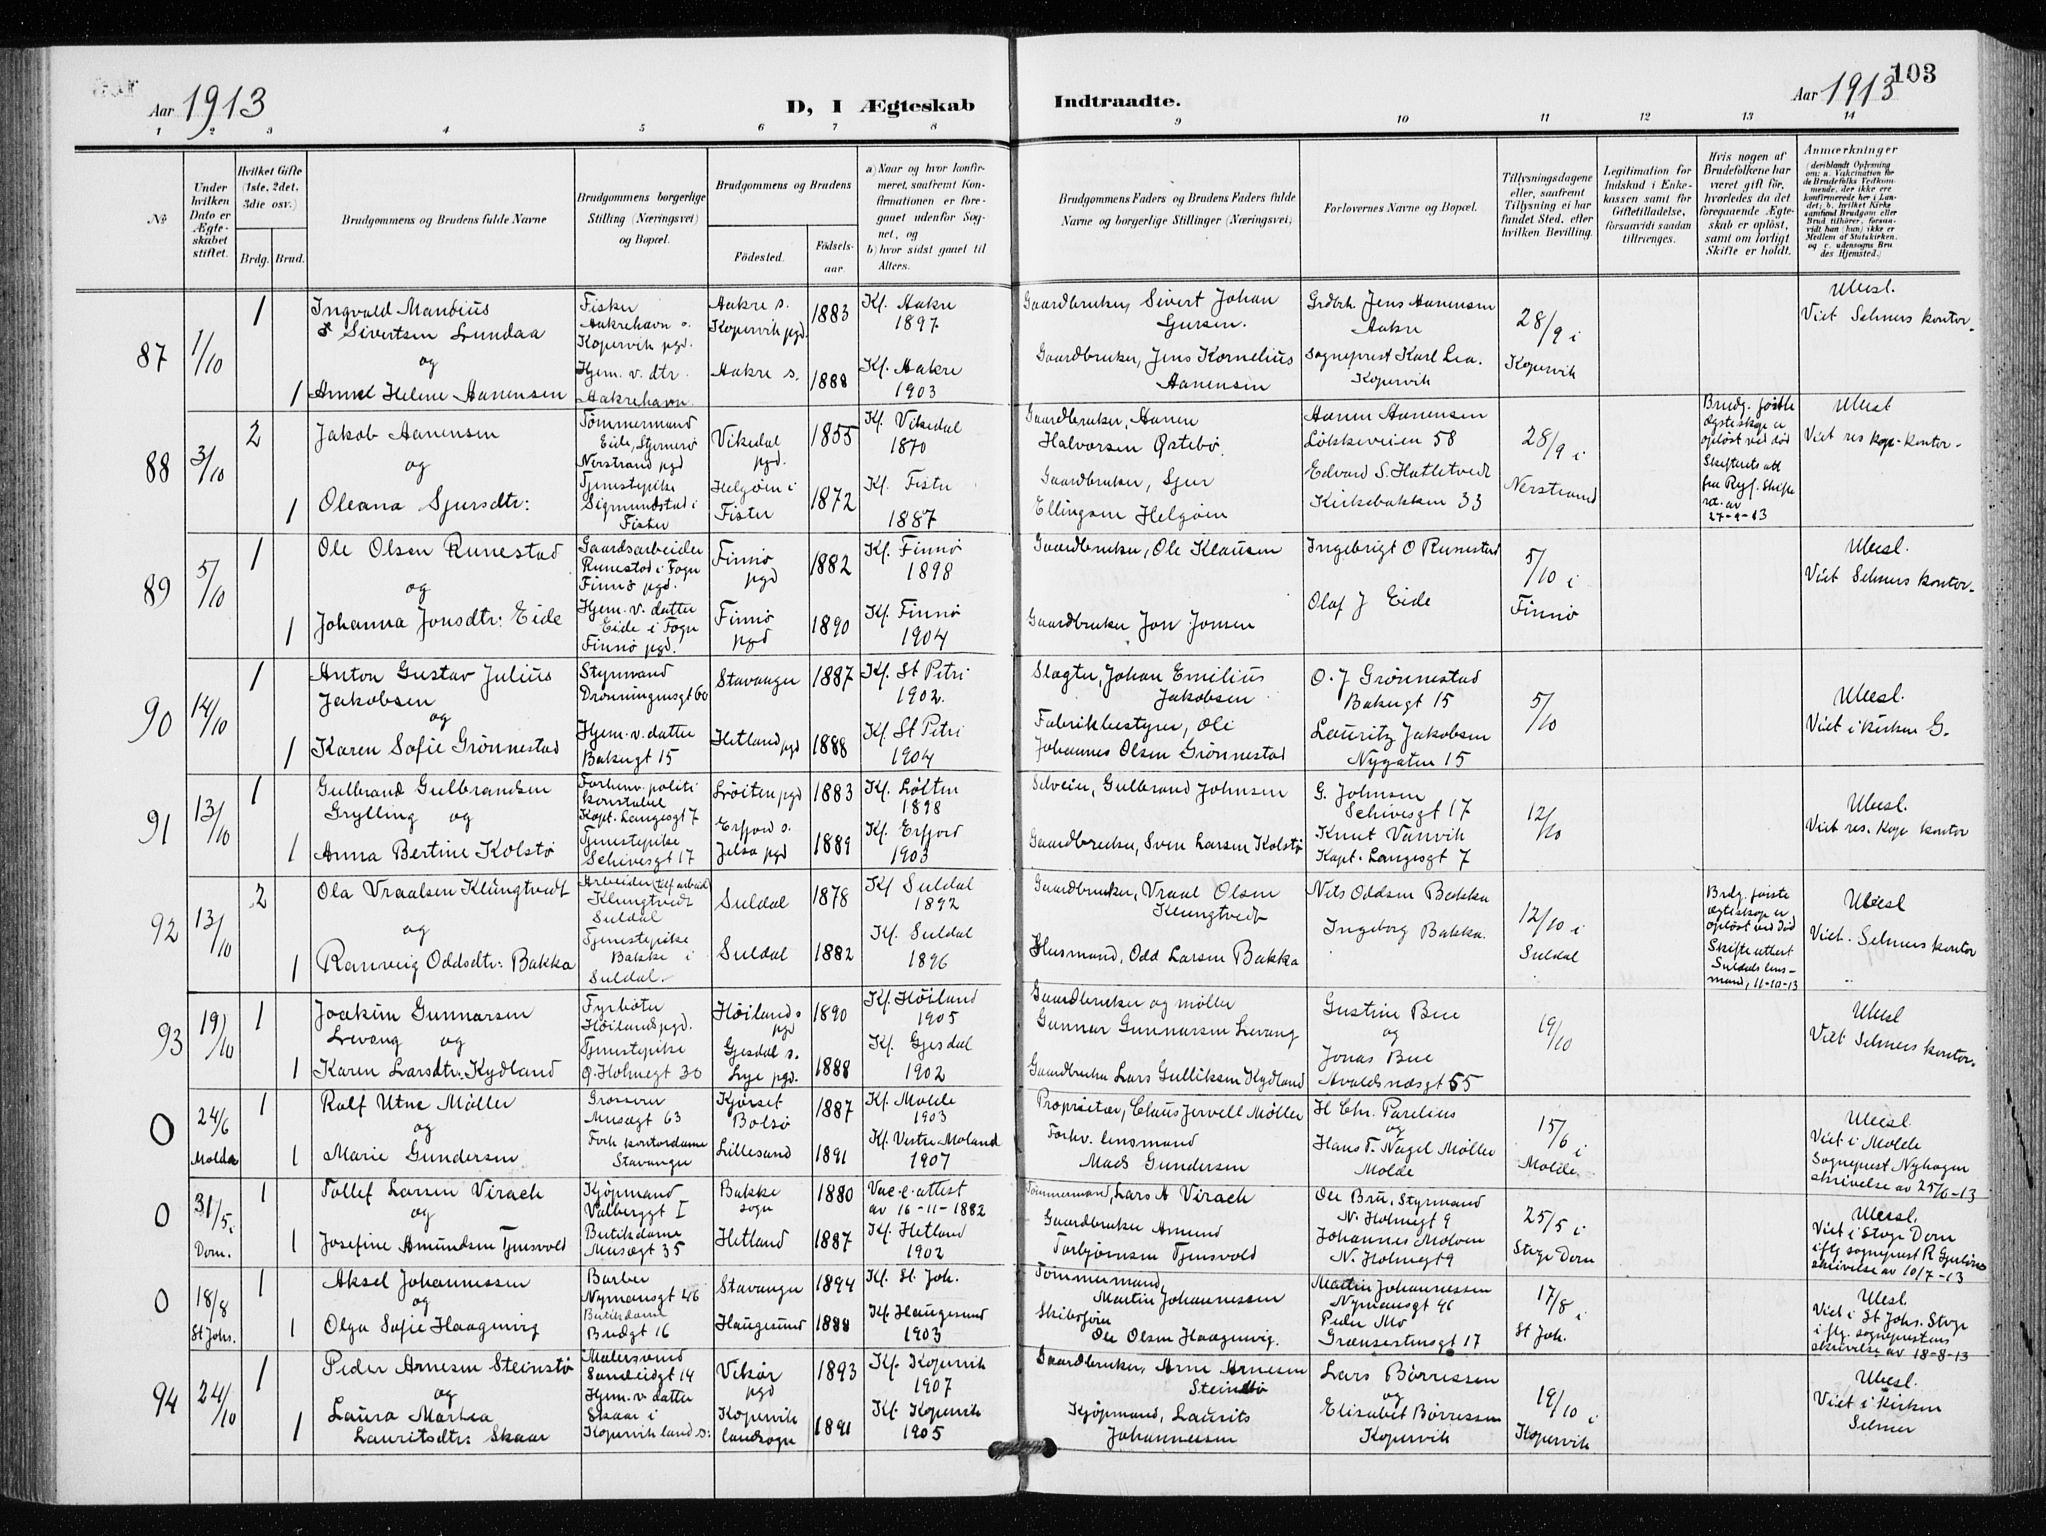 103
Aar 1913
D, I Ægteskab
Indtraadte.
Aar 1913
1 2 3 4 5 6 7 8 9 10 11 12 13 14
№
Under hvilken Dato er Ægteskabet stiftet.
Hvilket Gifte (1ste, 2det, 3die osv.)
Brdg. Brud.
Brudgommens og Brudens fulde Navne
Brudgommens borgerlige Stilling (Næringsvei) og Bopæl.
Brudgommens og Brudens
Fødested.
Fødselsaar.
a) Naar og hvor konfirmeret, saafremt Konfirmationen er foregaaet udenfor Sognet, og
b) hvor sidst gaaet til Alters.
Brudgommens Faders og Brudens Faders fulde Navne og borgerlige Stillinger (Næringsvei)
Forlovernes Navne og Bopæl.
Tillysningsdagene eller, saafremt Tillysning ei har fundet Sted, efter hvilken Bevilling.
Legitimation for Indskud i Enkekassen samt for Giftetilladelse, forsaavidt saadan tiltrænges.
Hvis nogen af Brudefolkene har været gift før, hvorledes da det foregaaende Ægteskab er opløst, samt om lovligt Skifte er holdt.
Anmærkninger
87 1/10 1 Ingvald
Sivertsen Lundaa
og
1 Helene Aanensen
Fisker
Aakrehavn s.
Kopervik pgd.
Hjem. v. dtr.
Aakrehavn.
Aakre s.
Kopervik pgd. 1883
Aakre s. 1888
Kf. Aakre
1897.
Kf. Aakre
1903
Gaardbruker, Sivert Johan
Gaardbruker, Jens Kornelius
Aanensen
Grdbrk. Jens Aanensen
Aakre
Sogneprest Karl Lea.
Kopervik
28/9 i
Kopervik
Ubesl.
Viet Selmers kontor.
88 3/10 2 Jakob Aanensen
og
1 Oleana Sjursdtr:
Tømmermand
Nerstrand pgd
Tjenestepike
Sigmundstad i
Fister
Vikedal
pgd. 1855
Helgøen i
Fister 1872
Kf. Vikedal
1870
Kf. Fister
1887
Gaardbruker, Aanen
Halvorsen Østebø.
Gaardbruker, Sjur
Ellingsen Helgøen
Aanen Aanensen
Løkkeveien 58
Edvard S. Hatletvedt
Kirkebakken 33
28/9 i
Nerstrand
Brudg. første
Ægteskap er
opløst ved død
Skifterets att
fra Ryf. Skifte
ret. av
27-9-13
Ubesl
Viet res kap-kontor.
89 5/10 1 Ole Olsen Runestad
og
1 Johanna Jonsdtr: Eide
Gaardsarbeider
Runestad i Fogn
Finnø pgd.
Hjem. v. datter
Eide i Fogn
Finnø pgd.
Finnø
pgd 1882
Finnø
pgd 1890
Kf. Finnø
1898
Kf. Finnø
1904
Gaardbruker, Ole Klausen
Gaardbruker Jon Jonsen
Ingebrigt O Runestad
Olaf J Eide
5/10 i
Finnø
Ubesl.
Viet Selmers kontor.
90 14/10 1 Anton Gustav Julius
Jakobsen
og
1 Karen Sofie Grønnestad
Styrmand
Dronningensgt 60
Hjem. v. datter
Bakergt 15
Stavanger 1887
Hetland pgd 1888
Kf. St Petri
1902.
Kf. St Petri
1904
Slagter, Johan Emilius
Jakobsen
Fabrikbestyrer, Ole
Johannes Olsen Grønnestad
O. J Grønnestad
Bakergt 15
Lauritz Jakobsen
Nygaten 15
5/10
Ubesl.
Viet i kirken G.
91 13/10 1 Gulbrand Gulbrandsen
Grylling og
1 Anna Bertine Kolstø
Forhenv. politi
konstabel
Kapt. Langesgt 7
Tjenestepike
Schivesgt 17
Løiten pgd 1883
Erfjord s.
Jelsa pgd 1889
Kf. Løiten
1898
Kf. Erfjord
1903
Selveier, Gulbrand Johnsen
Gaardbruker, Sven Larsen Kolstø
G. Johnsen
Schivesgt 17
Knut Vanvik
Kapt. Langesgt 7
12/10
Ubesl.
Viet res. kap kontor
92 13/10 2 Ola Vraalsen Klungtvedt
og
1 Ranveig Oddsdtr: Bakka
Arbeider (telf arbeid
Klungtvedt
Suldal
Tjenestepike
Bakke i
Suldal.
Suldal 1878
Suldal 1882
Kf Suldal
1892
Kf. Suldal
1896
Gaardbruker, Vraal Olsen
Klungtvedt
Husmand, Odd Larsen Bakka
Nils Oddsen Bakka
Ingeborg Bakka.
12/10 i
Suldal
Brdg. første
ægteskap er
opløst ved død
Skifte attest
Suldals lens-
mand, 11-10-13
Ubesl
Viet. Selmers kontor
93 19/10 1 Joakim Gunnarsen
Levang og
1 Karen Larsdtr: Kydland
Fyrbøter
Høilands pgd.
Tjenestepike
Ø. Holmegt 30
Høilands
pgd 1890
Gjesdal s.
Lye pgd. 1888
Kf. Høiland
1905
Kf. Gjesdal
1902
Gaardbruker og møller
Gunnar Gunnarsen Levang
Gaardbruker Lars Gulliksen Kydland
Gustine Bue
og
Jonas Bue
Avaldsnæsgt 55
19/10
Ubesl
Viet Selmers kontor.
0 24/6
Molde 1 Rolf Utne Møller
og
1 Marie Gundersen
Grosserer
Musægt 63
Forh. kontordame
Stavanger
Bolsø 1887
Lillesand 1891
Kf. Molde
1903
Kf. Vestre Moland
1907
Proprietær, Claus Jervell Møller
Forhv. lensmand
Mads Gundersen
H Chr. Parelius
og
Hans T. Nagel Møller
Molde
15/6 i
Molde
Ubesl.
Viet i Molde
Sogneprest Nyhagen
skrivelse av 25/6-13
0 31/5 i
Dom. 1 Tollef Larsen Virach
og
1 Josefine Amundsen Tjensvold
Kjøpmand
Valberggt I
Butikdame
Musægt 35
Bakke
sogn 1880
Hetland 1887
Vac.c. attest
av 16-11-1882
Kf. Hetland
1902
Tømmermand, Lars A Virach
Gaardbruker Amund
Torbjørnsen Tjensvold
Ole Bru, Styrmand
N. Holmegt 9
Johannes Molven
N. Holmegt 9
25/5 i
Stvgr Dom
Ubesl.
Viet i Stvgr Dom
iflg sogneprest R
skrivelse av 10/7-13
0 18/8
St Johs. 1 Aksel Johannessen
og
1 Olga Sofie Haagenvig
Barber
Nymansgt 46
Butikdame
Bredgt 16
Stavanger 1894
Haugesund 1888
Kf. St Joh.
Kf. Haugesund
1903
Tømmermand,
Martin Johannessen
Skibsfører
Ole Olsen Haagenvig.
Martin Johannessen
Nymansgt 46
Peder Mo
Grænsestensgt 17
17/8 i
St Joh.
Ubesl.
Viet i St Johs. Stvgr
iflg. sogneprestens
skrivelse av 18-8-13
94 24/10 1 Peder Arnesen Steinstø
og
1 Laura Martea
Lauritsdtr: Skaar
Malersvend
Sandeidgt 14
Hjem. v. datter
Skaar i
Kopervik land s:
Vikør
pgd 1893
Kopervik
landsogn 1891
Kf. Kopervik
1907
Kf. Kopervik
1905
Gaardbruker, Arne Arnesen
Steinstø
Kjøpmand, Laurits
Johannesen
Lars Børresen
og
Elisabet Børresen
Kopervik
19/10 i
Kopervik
Ubesl.
Viet i kirken
Selmer